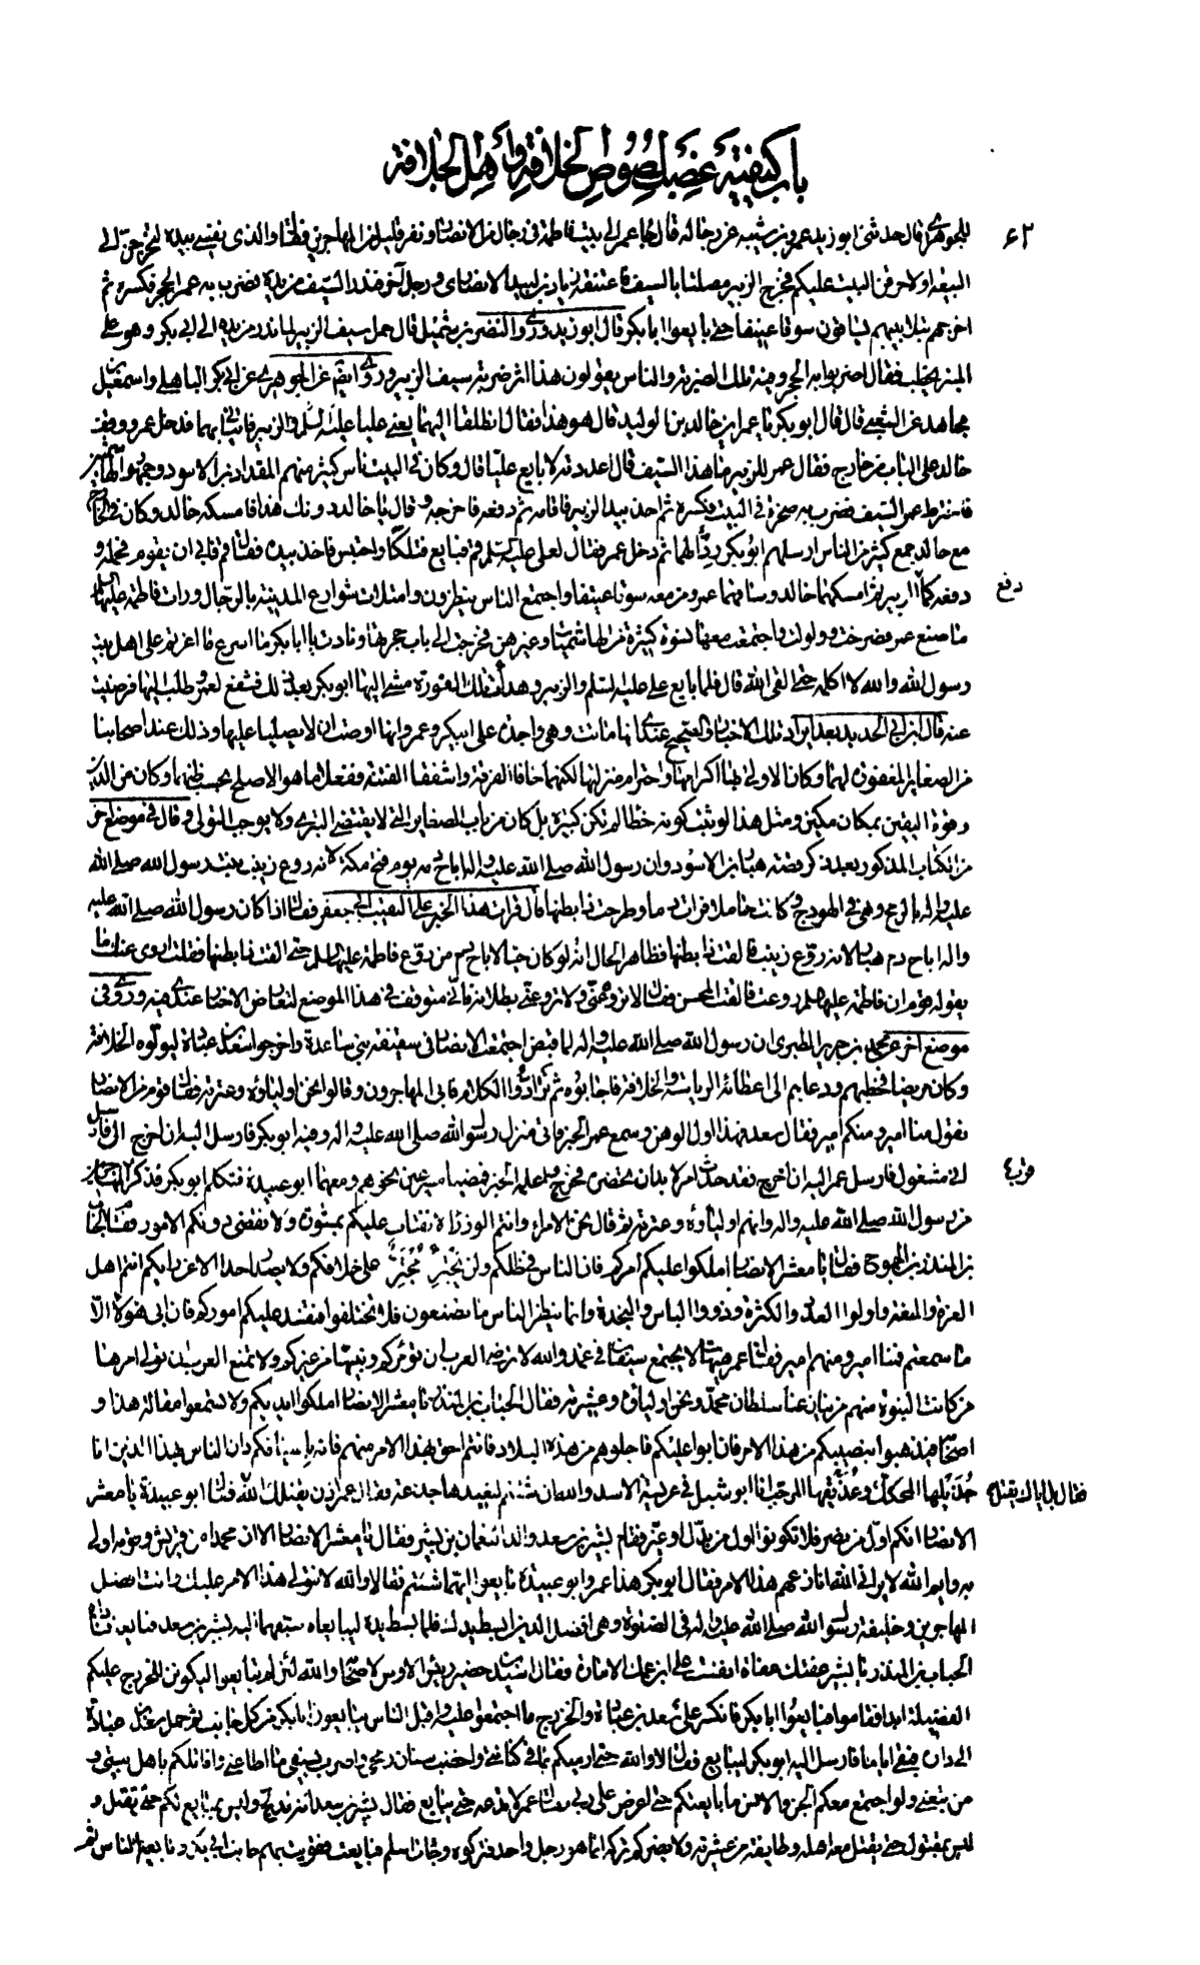 باب كيفية غصب لصوص الخلافة وأهل الجلافة
٦٢
للجوهري قال حدثني ابو زيد عمر بن شيبه عن رجاله قال جاء عمر الى بيت فاطمة في رجال من الانصار ونفر قليل من المهاجرين فقال والذي نفسي بيده لتخرجن الى
البيعة او لاحرقن البيت عليكم فخرج الزبير مصلتا بالسيف فاعتنقه زياد بن لبيد الانصاري ورجل آخر فندر السيف من يده فضرب به عمر الحجر فكسره ثم
اخرجهم بتلابيبهم يساقون سوقا عنيفا حتى بايعوا ابا بكر قال ابو زيد وروى النضر بن شميل قال حمل سيف الزبير لما ندر من يده الى ابي بكر وهو على
المنبر يخطب فقال اضربوا به الحجر وفيه تلك الضربة والناس يقولون هذا اثر ضربة سيف الزبير وروى ايضا عن الجوهري عن ابي بكر الباهلي واسمعيل بن
مجاهد عن الشعبي قال قال ابو بكر يا عمر اين خالد بن الوليد قال هو هذا فقال انطلقا اليهما يعني عليا عليه السلم والزبير فاتياني بهما فدخل عمر ووقف
خالد على الباب من خارج فقال عمر للزبير ما هذا السيف قال اعددته لابايع عليا قال وكان في البيت ناس كثير منهم المقداد بن الاسود وجمهور الهاشميين
فاخترط عمر السيف فضرب به صخرة في البيت فكسره ثم اخذ بيد الزبير فاقامه ثم دفعه فاخرجه وقال يا خالد دونك هذا فامسكه خالد وكان في الخارج
مع خالد جمع كثير من الناس ارسلهم ابو بكر ردءا لهما ثم دخل عمر فقال لعلي عليه السلم قم فبايع فتلكأ واحتبس فاخذ بيده فقال قم فابى ان يقوم فحمله و
دفعه كما الزبير ثم امسكهما خالد وساقهما عمر ومن معه سوقا عنيفا واجتمع الناس ينظرون وامتلات شوارع المدينة بالرجال ورات فاطمة عليها السلم
دفع
ما صنع عمر فصرخت وولولت واجتمعت معها نسوة كثيرة من الهاشميات وغيرهن فخرجت الى باب حجرتها ونادت يا ابا بكر ما اسرع ما اغرتم على اهل بيت
رسول الله والله لا اكلمه حتى القى الله قال فلما بايع علي عليه السلم والزبير وهدات تلك الفورة مشى اليها ابو بكر بعد ذلك فشفع لعمر وطلب اليها فرضيت
عنه قال ابن ابي الحديد بعد ايراد تلك الاخبار والصحيح عندي انها ماتت وهي واجدة على ابي بكر وعمر وانها اوصت ان لا يصليا عليها وذلك عند اصحابنا
من الصغائر المغفورة لهما وكان الاولى بهما اكرامها واحترام منزلها لكنهما خافا الفرقة واشفقا الفتنة ففعلا ما هو الاصلح بحسب ظنهما وكانا من الدين
وقوة اليقين بمكان مكين ومثل هذا لو ثبت كونه خطا لم تكن كبيرة بل كان من باب الصغائر التي لا يقتضي التبري ولا يوجب التولي وقال في موضع آخر
من الكتاب المذكور بعد ذكر قصة هبار بن الاسود وان رسول الله صلى الله عليه واله اباح دمه يوم فتح مكة لانه روع زينب بنت رسول الله صلى الله
عليه واله بالرمح وهي في الهودج وكانت حاملا فرات دما وطرحت ذا بطنها قال قرات هذا الخبر على النقيب ابي جعفر فقال اذا كان رسول الله صلى الله عليه
واله اباح دم هبار لانه روع زينب فالقت ذا بطنها فظاهر الحال انه لو كان حيا لاباح دم من روع فاطمة عليها السلم حتى القت ذا بطنها فقلت اروي عنك ما
يقوله قوم ان فاطمة عليها السلم روعت فالقت المحسن فقال لا تروه عني ولا تروعني بطلانه فاني متوقف في هذا الموضع لتعارض الاخبار عندي فيه وروى في
موضع آخر عن محمد بن جرير الطبري ان رسول الله صلى الله عليه واله لما قبض اجتمعت الانصار في سقيفة بني ساعدة واخرجوا سعد بن عبادة ليولوه الخلافة
وكان مريضا فخطبهم ودعاهم الى اعطائه الرياسة والخلافة فاجابوه ثم ترادوا الكلام فان ابى المهاجرون وقالوا نحن اولياؤه وعترته فقال قوم من الانصار
نقول منا امير ومنكم امير فقال سعد فهذا اول الوهن وسمع عمر الخبر فاتى منزل رسول الله صلى الله عليه واله وفيه ابو بكر فارسل اليه ان اخرج الي فارسل
اني مشغول فارسل عمر اليه ان اخرج فقد حدث امر لا بد ان تحضره فخرج فاعلمه الخبر فمضيا مسرعين نحوهم ومعهما ابو عبيدة فتكلم ابو بكر فذكر المهاجرين
قرب
من رسول الله صلى الله عليه واله وانهم اولياؤه وعترته ثم قال نحن الامراء وانتم الوزراء لا نفتات عليكم بمشورة ولا نقضي دونكم الامور فقام الحباب
بن المنذر بن الجموح فقال يا معشر الانصار املكوا عليكم امركم فان الناس في ظلكم ولن يجترئ مجترئ على خلافكم ولا يصدر احد الا عن رايكم انتم اهل
العزة والمنعة واولوا العدد والكثرة وذووا الباس والنجدة وانما ينظر الناس ما تصنعون فلا تختلفوا فتفسد عليكم اموركم فان ابى هؤلاء الا
ما سمعتم فمنا امير ومنهم امير فقال عمر هيهات لا يجتمع سيفان في غمد والله لا ترضى العرب ان تؤمركم ونبيها من غيركم ولا تمتنع العرب ان تولي امرها
من كانت النبوة منهم من ينازعنا سلطان محمد ونحن اولياؤه وعشيرته فقال الحباب بن المنذر يا معشر الانصار املكوا ايديكم ولا تسمعوا مقالة هذا و
اصحابه فيذهبوا بنصيبكم من هذا الامر فان ابوا عليكم فاجلوهم من هذه البلاد فانتم احق بهذا الامر منهم فانه باسيافكم دان الناس بهذا الدين انا
جذيلها المحكك وعذيقها المرجب انا ابو شبل في عرينة الاسد والله ان شئتم لنعيدها جذعة فقال عمر اذن يقتلك الله فقال ابو عبيدة يا معشر
فقال بل اياك يقتل
الانصار انكم اول من نصر فلا تكونوا اول من بدل او غير فقام بشير بن سعد والد النعمان بن بشير فقال يا معشر الانصار الا ان محمدا من قريش وقومه اولى
به وايم الله لا يراني الله انازعهم هذا الامر فقال ابو بكر هذا عمر وابو عبيدة بايعوا ايهما شئتم فقالا والله لا نتولى هذا الامر عليك وانت افضل
المهاجرين وخليفة رسول الله صلى الله عليه واله في الصلوة وهي افضل الدين ابسط يدك فلما بسط يده ليبايعاه سبقهما اليه بشير بن سعد فبايعه فناداه
الحباب بن المنذر يا بشير عققت عقاق انفست على ابن عمك الامارة فقال اسيد بن حضير رئيس الاوس لاصحابه والله لئن لم تبايعوا ليكونن للخزرج عليكم
الفضيلة ابدا فقاموا فبايعوا ابا بكر فانكسر على سعد بن عبادة والخزرج ما اجتمعوا عليه واقبل الناس يبايعون ابا بكر من كل جانب ثم حمل سعد بن عبادة
الى داره فبقي اياما فارسل اليه ابو بكر ليبايع فقال لا والله حتى ارميكم بما في كنانتي واخضب سنان رمحي واضرب بسيفي ما اطاعني واقاتلكم باهل بيتي و
من تبعني ولو اجتمع معكم الجن والانس ما بايعتكم حتى اعرض على ربي فقال عمر لا تدعه حتى يبايع فقال بشير بن سعد انه قد لج وليس بمبايع لكم حتى يقتل و
ليس بمقتول حتى يقتل معه اهله وطايفة من عشيرته ولا يضركم تركه انما هو رجل واحد فتركوه وجاءت اسلم فبايعت فقويت بهم جانب ابي بكر وبايعه الناس ثم